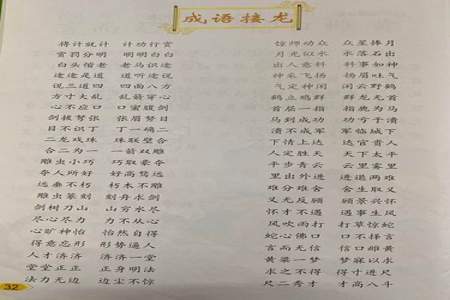 成语接龙
将计就计 计功行赏
赏罚分明 明明白白
白头偕老 老马识途
是道 道听途说
说三道四 四面八方
方寸大乱 乱箭穿心
心不应口 口蜜腹剑
剑拔弩张 张眉努目
目不识丁 丁一确二
二龙戏珠 珠联璧合
合二为一 一箭双雕
雕虫小巧 巧取豪夺
夺人所好 好高骛远
远垂不朽 朽木不雕
雕虫篆刻 刻舟求剑
剑树刀山 山穷水尽
尽心尽力 力不从心
心旷神怡 怡然自得
得意忘形 形势逼人
人才济济 济济一堂
堂堂正正 正身明法
法力无边 边尘不惊
惊师动众 众星捧月
月光似水 水落石出
出人意料 料事如神
神采飞扬 扬眉吐气
气定神闲 闲云野鹤
鹤立鸡群 群龙无首
首屈一指 指鹿为马
马到成功 功亏于溃
溃不成军 军临城下
下情上达 达官贵人
人定胜天 天下太平
平步青云 云里雾里
里出外进 进退两难
难分难舍 舍生取义
义无反顾 顾景兴怀
怀才不遇 遇事生风
风吹雨打 打草惊蛇
蛇心佛口 口不择言
言而无信 信口雌黄
黄粱一梦 梦寐以求
求之不得 得寸进尺
尺二秀才 才高八斗
32